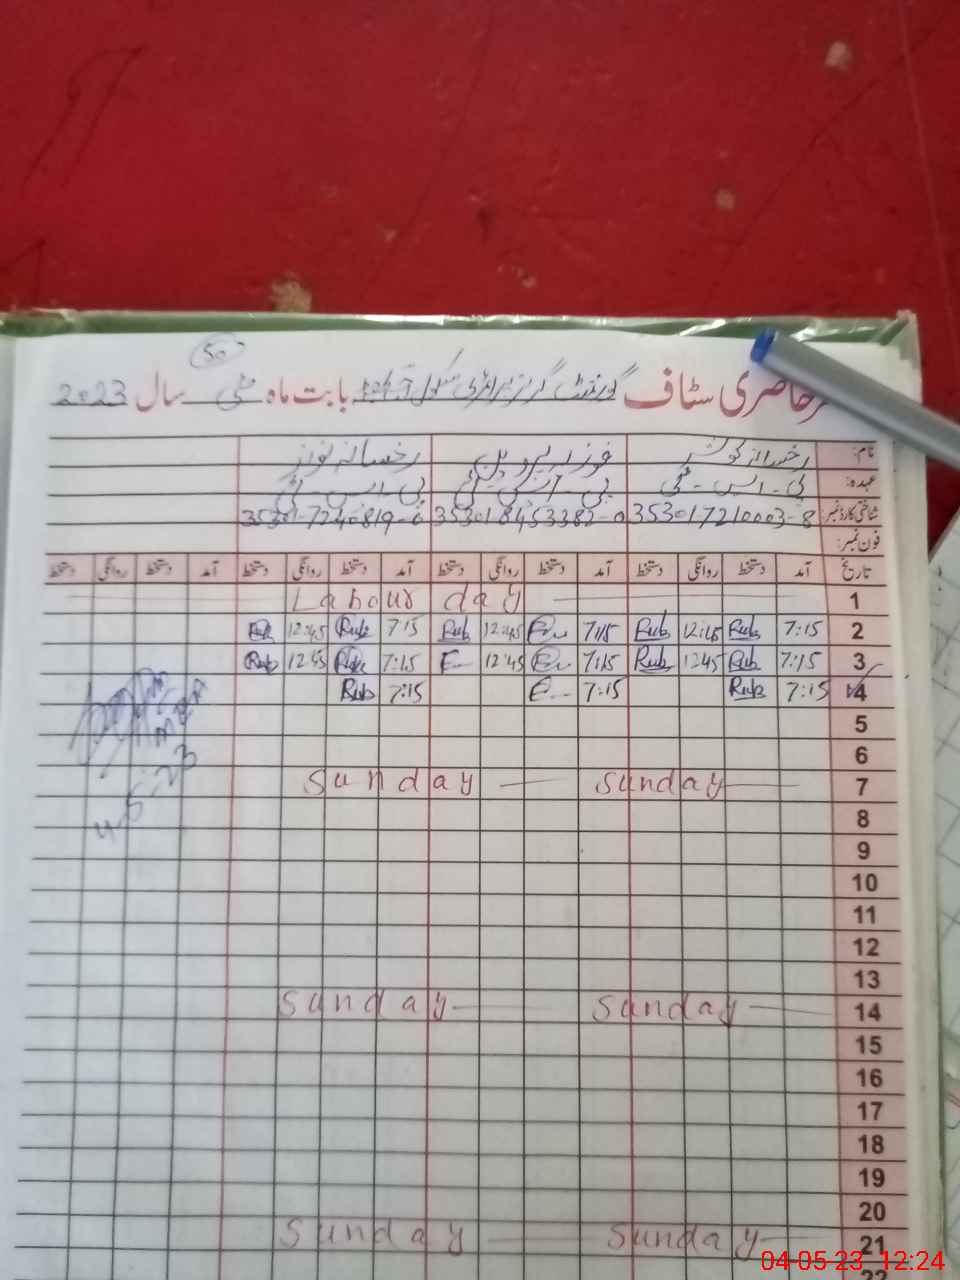 50
حاضری سٹاف گورنمنٹ گرلز پرائمری سکول بابت ماہ مئی سال 2023
نام: رخسانہ کوثر فوزیہ پروین رخسانہ نواز
عہدہ: پی-ایس-ٹی پی-ایس-ٹی پی-ایس-ٹی
شناختی کارڈ نمبر: 353017210003-8 353018453382-0 35301-7240819-0
فون نمبر:
تاریخ آمد دستخط روانگی دستخط آمد دستخط روانگی دستخط آمد دستخط روانگی دستخط آمد دستخط روانگی دستخط
1 Labour day
2 7:15 Rub 12:45 Rub 7:15 12:45 Rub 7:15 Rub 12:45
3 7:15 Rub 12:45 Rub 7:15 12:45 7:15 Rub 12:45 Rub
4 7:15 Rub 7:15 7:15 Rub
5
6
7 Sunday Sunday
8
9
10
11
12
13
14 Sunday Sunday
15
16
17
18
19
20
21 Sunday Sunday
22
4-5-23
04-05-23 12:24